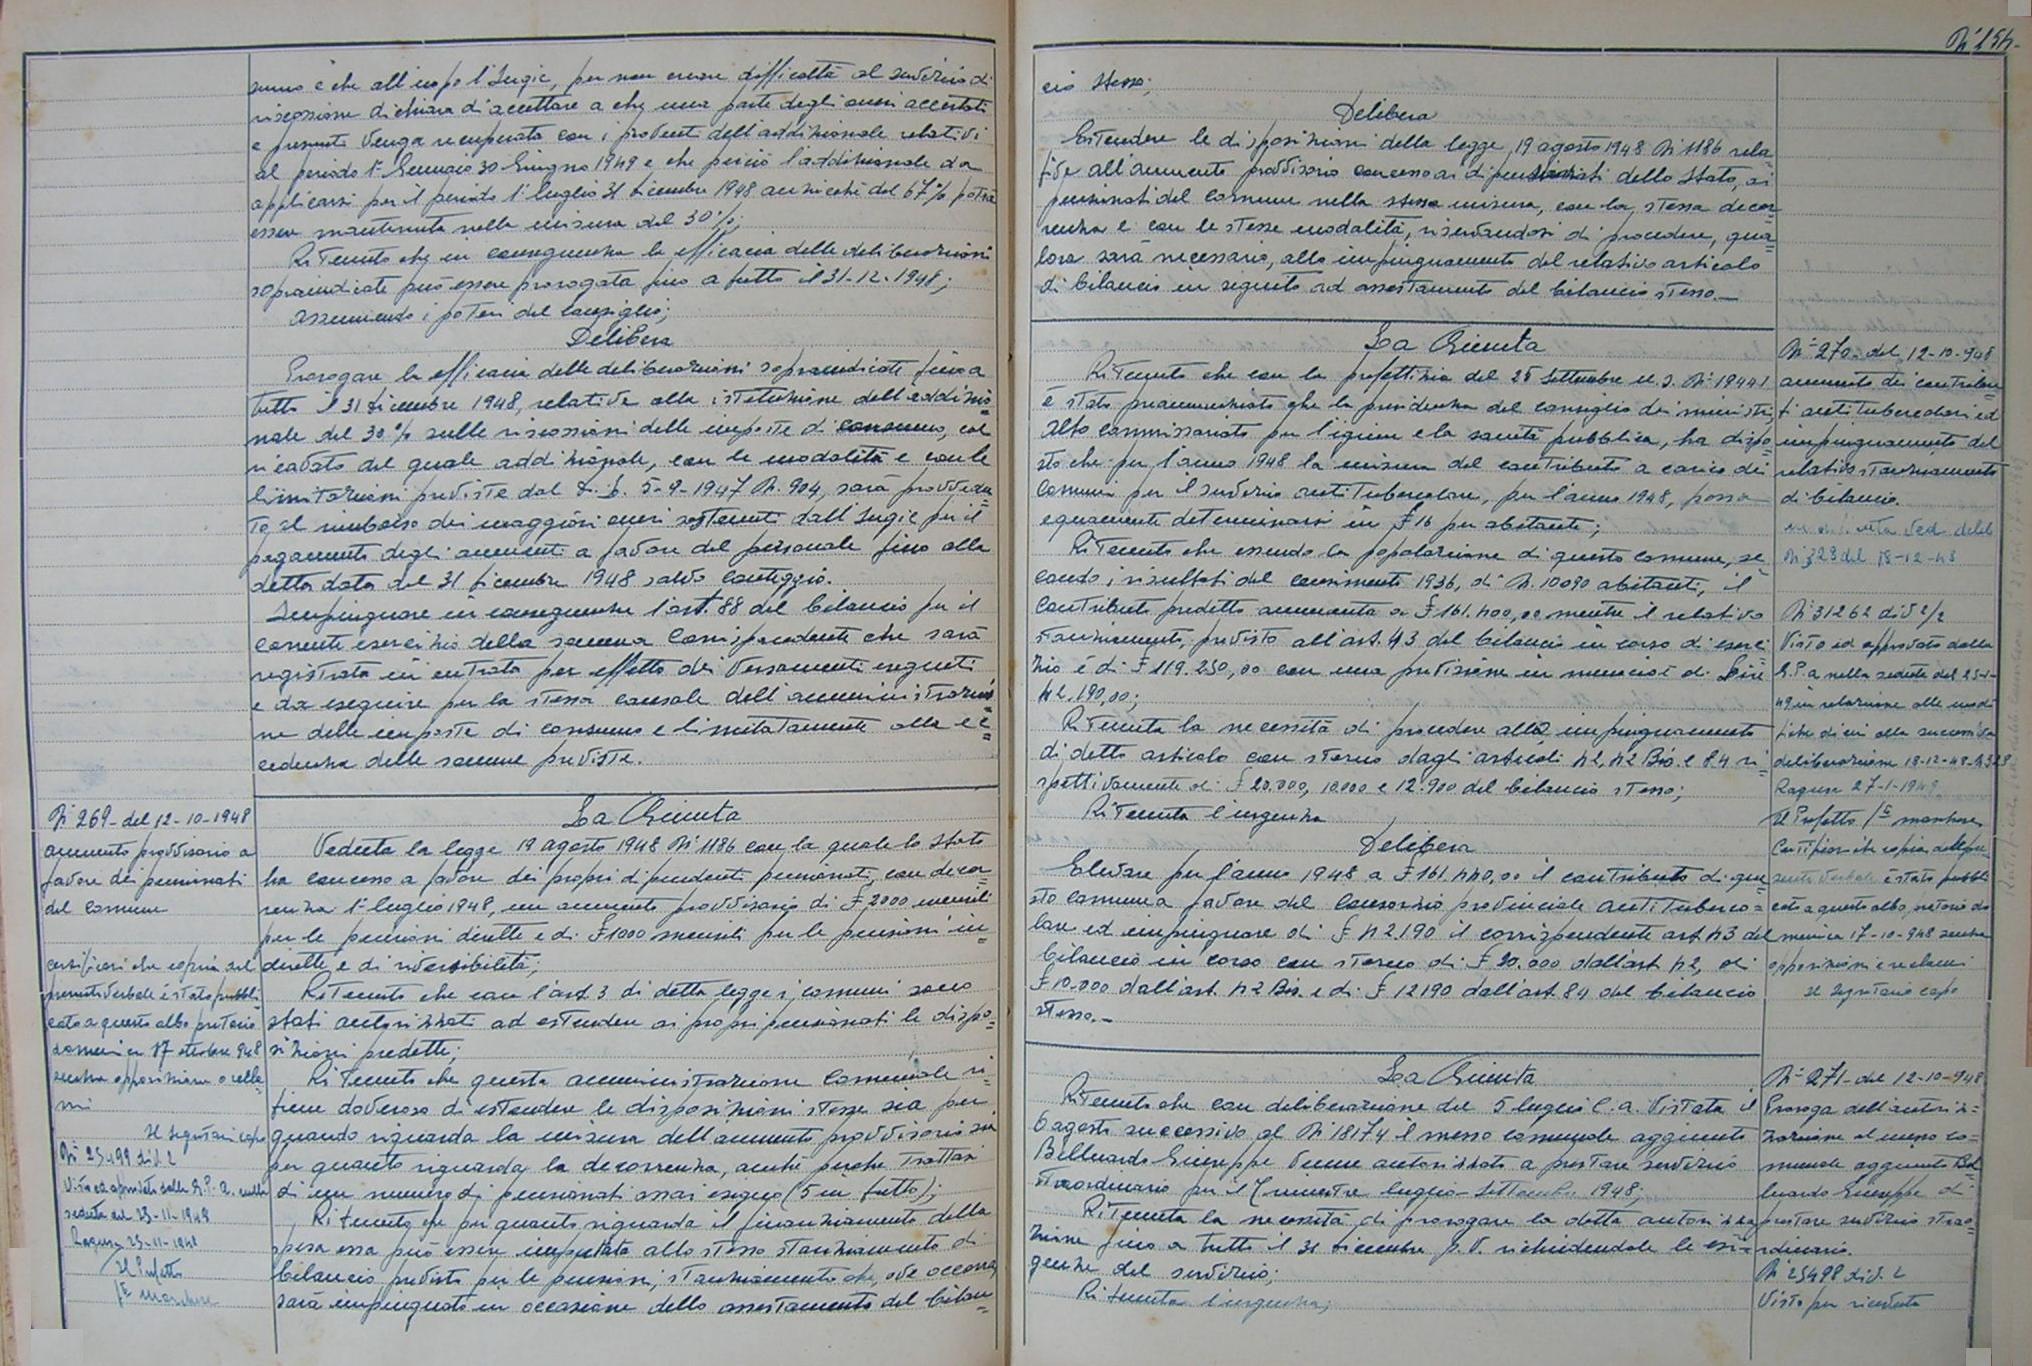 sumo e che all'uopo l'Ingic, per non creare difficoltà al servizio di
riscossione dichiara di accettare a che una parte degli oneri accertati
e presunti venga recuperata con i proventi dell'addizionale relativi
al periodo 1° Gennaio 30 Giugno 1949 e che perciò l'addizionale da
applicarsi per il periodo 1° luglio 31 dicembre 1948 anzicchè del 67% potrà
essere mantenuta nella misura del 30%;
Ritenuto che in conseguenza la efficacia delle deliberazioni
sopraindicate può essere prorogata fino a tutto il 31-12-1948;
Assumendo i poteri del Consiglio;
Delibera
Prorogare la efficacia delle deliberazioni sopraindicate fino a
tutto il 31 dicembre 1948, relative alla istituzione dell'addizio=
nale del 30% sulle riscossioni delle imposte di consumo, col
ricavato del quale addizionale, con le modalità e con le
limitazioni previste dal D. L. 5-9-1947 N. 904, sarà provvedu=
to al rimborso dei maggiori oneri sostenuti dall'Ingic per il
pagamento degli aumenti a favore del personale fino alla
detta data del 31 dicembre 1948 salvo conteggio.
Impinguare in conseguenza l'art. 88 del bilancio per il
corrente esercizio della somma corrispondente che sarà
registrata in entrata per effetto dei versamenti eseguiti
e da eseguire per la stessa causale dell'amministrazio=
ne delle imposte di consumo e limitatamente alla ec=
cedenza delle somme previste.
N° 269 - del 12-10-1948
aumento provvisorio a
favore dei pensionati
del Comune
certificasi che copia del
presente verbale è stato pubbli
cato a questo albo pretorio
domenica 17 ottobre 948
senza opposizione o recla
mi
Il Segretario capo
N° 25499 div. 2
Visto ed approvato dalla G.P.A. nella
seduta del 23-11-1948
Ragusa 25-11-1948
Il Prefetto
La Giunta
Veduta la legge 19 agosto 1948 N° 1186 con la quale lo Stato
ha concesso a favore dei propri dipendenti pensionati, con decor=
renza 1° luglio 1948, un aumento provvisorio di £ 2000 mensili
per le pensioni dirette e di £ 1000 mensili per le pensioni in=
dirette e di riversibilità;
Ritenuto che con l'art. 3 di detta legge i comuni sono
stati autorizzati ad estendere ai propri pensionati le dispo=
sizioni predette;
Ritenuto che questa amministrazione comunale ri=
tiene doveroso di estendere le disposizioni stesse sia per
quando riguarda la misura dell'aumento provvisorio sia
per quanto riguarda la decorrenza, anche perchè trattasi
di un numero di pensionati assai esiguo (5 in tutto);
Ritenuto che per quanto riguarda il finanziamento della
spesa essa può essere imputata allo stesso stanziamento di
bilancio previsto per le pensioni, stanziamento che, ove occorra,
sarà impinguato in occasione dello assestamento del bilan=
N° 154-
cio stesso;
Delibera
Estendere le disposizioni della legge 19 agosto 1948 N° 1186 rela=
tive all'aumento provvisorio concesso ai dello Stato, ai
pensionati del comune nella stessa misura, con la stessa decor=
renza e con le stesse modalità, riservandosi di procedere, qua=
lora sarà necessario, allo impinguamento del relativo articolo
di bilancio in seguito ad assestamento del bilancio stesso.-
La Giunta
Ritenuto che con la prefettizia del 28 Settembre u. s. N° 19441
è stato preannunciato che la presidenza del consiglio dei ministri,
Alto Commissariato per l'igiene e la sanità pubblica, ha dispo=
sto che per l'anno 1948 la misura del contributo a carico dei
Comuni per il servizio antitubercolare, per l'anno 1948, possa
equamente determinarsi in £ 16 per abitante;
Ritenuto che essendo la popolazione di questo comune, se=
condo i risultati del censimento 1936, di N. 10090 abitanti, il
contributo predetto ammonta a £ 161.400,00 mentre il relativo
stanziamento, previsto all'art. 43 del bilancio in corso di eserci
zio è di £ 119.250,00 con una previsione in meno cioè di Lire
42.190,00;
Ritenuta la necessità di procedere allo impinguamento
di detto articolo con storno dagli articoli 42, 42 Bis. e 84 ri=
spettivamente di £ 20.000, 10.000 e 12.900 del bilancio stesso;
Ritenuta l'urgenza
Delibera
Elevare per l'anno 1948 a £ 161.440,00 il contributo di que=
sto comune a favore del Consorzio provinciale antituberco=
lare ed impinguare di £ 42.190 il corrispondente art. 43 del
bilancio in corso con storno di £ 20.000 dall'art. 42, di
£ 10.000 dall'art. 42 Bis. e di £ 12190 dall'art. 84 del bilancio
stesso.-
N° 270- del 12-10-948
aumento dei contributi
antitubercolari ed
impinguamento del
relativo stanziamento
di bilancio.
Ved. delib.
N. 328 del 18-12-48
N° 31262 div 2/2
Visto ed approvato dalla
G.P.A nella seduta del 25-1-
49 in relazione alle modi
fiche di cui alla successiva
deliberazione 18-12-48-N 328
Ragusa 27-1-1949
Il Prefetto
Certificasi che copia del pre=
sente verbale è stato pubbli
cato a questo albo pretorio do
menica 17-10-948 senza
opposizioni e reclami
Il Segretario capo
La Giunta
Ritenuto che con deliberazione del 5 luglio c. a. vistata il
6 agosto successivo al N° 18174 il messo comunale aggiunto
Belluardo Giuseppe venne autorizzato a prestare servizio
straordinario per il trimestre luglio-Settembre 1948;
Ritenuta la necessità di prorogare la detta autorizza
zione fino a tutto il 31 dicembre p. v. richiedendole le esi=
genze del servizio;
Ritenuta l'urgenza;
N° 271- del 12-10-948
Proroga dell'autoriz=
zazione al messo co=
munale aggiunto Bel
luardo Giuseppe di
prestare servizio strao=
rdinario.
N° 25498 div. 2
Visto per ricevuta